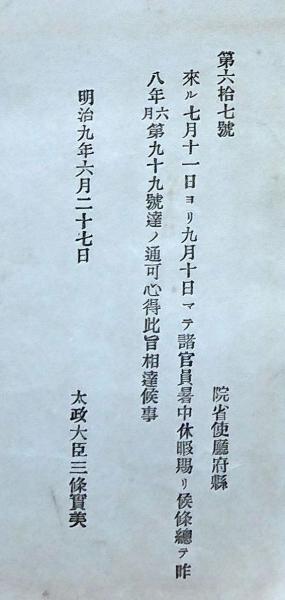 第六拾七號
院省使廳府縣
來ル七月十一日ヨリ九月十日マテ諸官員暑中休暇賜リ候條總テ昨
八年六月第九十九號達ノ通可心得此旨相達候事
明治九年六月二十七日
太政大臣三條實美